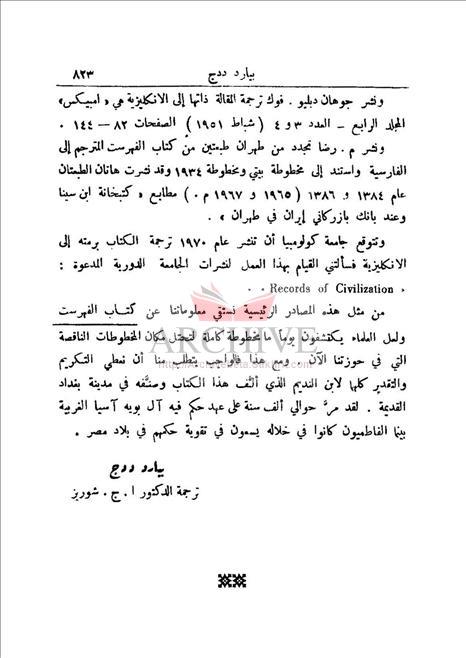 بيارد ددج ٨٢٣
ونشر جوهان دبليو . فوك ترجمة المقالة ذاتها إلى الانكليزية هي « امبيكس »
المجلد الرابع – العدد ٣ و ٤ ( شباط ١٩٥١ ) الصفحات ٨٢ – ١٤٤ .
ونشر م . رضا تجدد من طهران طبعتين من كتاب الفهرست المترجم إلى
الفارسية واستند إلى مخطوطة بيتي ومخطوطة ١٩٣٤ وقد نشرت هاتان الطبعتان
عام ١٣٨٤ و ١٣٨٦ ( ١٩٦٥ و ١٩٦٧ م . ) مطابع « كتبخانة ابن سينا
وعند بانك بازركاني إيران في طهران » .
وتتوقع جامعة كولومبيا أن تنشر عام ١٩٧٠ ترجمة الكتاب برمته إلى
الانكليزية فسألتني القيام بهذا العمل لنشرات الجامعة الدورية المدعوة :
« Records of Civilization » .
من مثل هذه المصادر الرئيسية نستقي معلوماتنا عن كتاب الفهرست
ولعل العلماء يكتشفون يوماً ما مخطوطة كاملة لتحتل مكان المخطوطات الناقصة
التي في حوزتنا الآن . ومع هذا فالواجب يتطلب منا أن نعطي التكريم
والتقدير كلها لابن النديم الذي ألّف هذا الكتاب وصنّفه في مدينة بغداد
القديمة . لقد مرّ حوالي ألف سنة على عهد حكم فيه آل بويه آسيا الغربية
بينما الفاطميون كانوا في خلاله يسعون في تقوية حكمهم في بلاد مصر .
بيارد ددج
ترجمة الدكتور ا . ج . شوربز
ARCHIVE